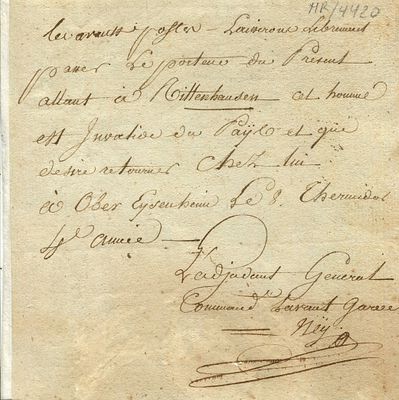 MR/4420
les avants postes - Laisserons Librement
passer Le porteur du Present
allant à Rittenhausen cet homme
est Invalide du Païs et que
desire retourner chez lui
à Ober Eysenheim Le 8. Thermidor
4e année —
L'adjudant Général
Command. L'avant Garde
Ney